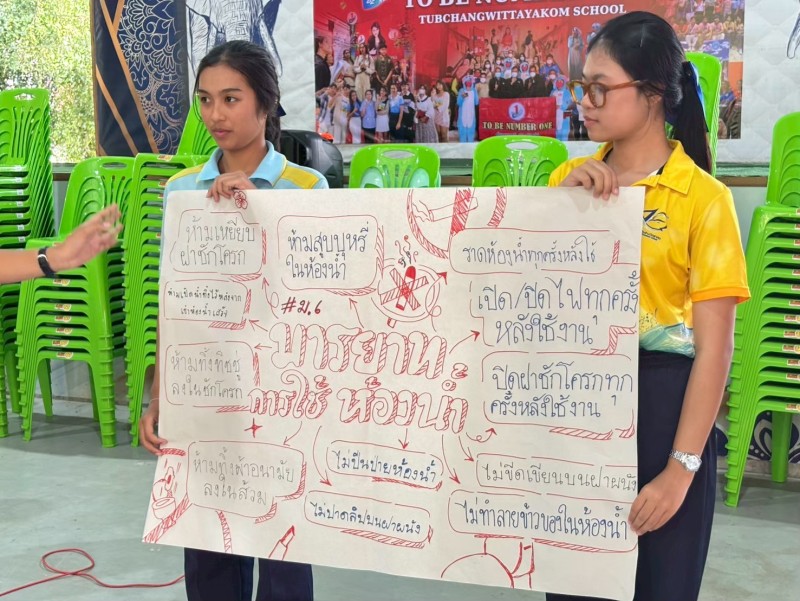 TO BE NUMBER
TUBCHANGWITTAYAKOM SCHOOL
TO BE NUMBER ONE
ห้ามเหยียบ
ฝาชักโครก
ห้ามสูบบุหรี่
ในห้องน้ำ
ราดห้องน้ำทุกครั้งหลังใช้
เปิด/ปิดไฟทุกครั้ง
หลังใช้งาน
#ม.6
มารยาท
การใช้ ห้องน้ำ
ห้ามทิ้งทิชชู่
ลงในชักโครก
ปิดฝาชักโครกทุก
ครั้งหลังใช้งาน
ห้ามทิ้งผ้าอนามัย
ลงในส้วม
ไม่ปีนป่ายห้องน้ำ
ไม่ขีดเขียนบนฝาผนัง
ไม่ทำลายข้าวของในห้องน้ำ